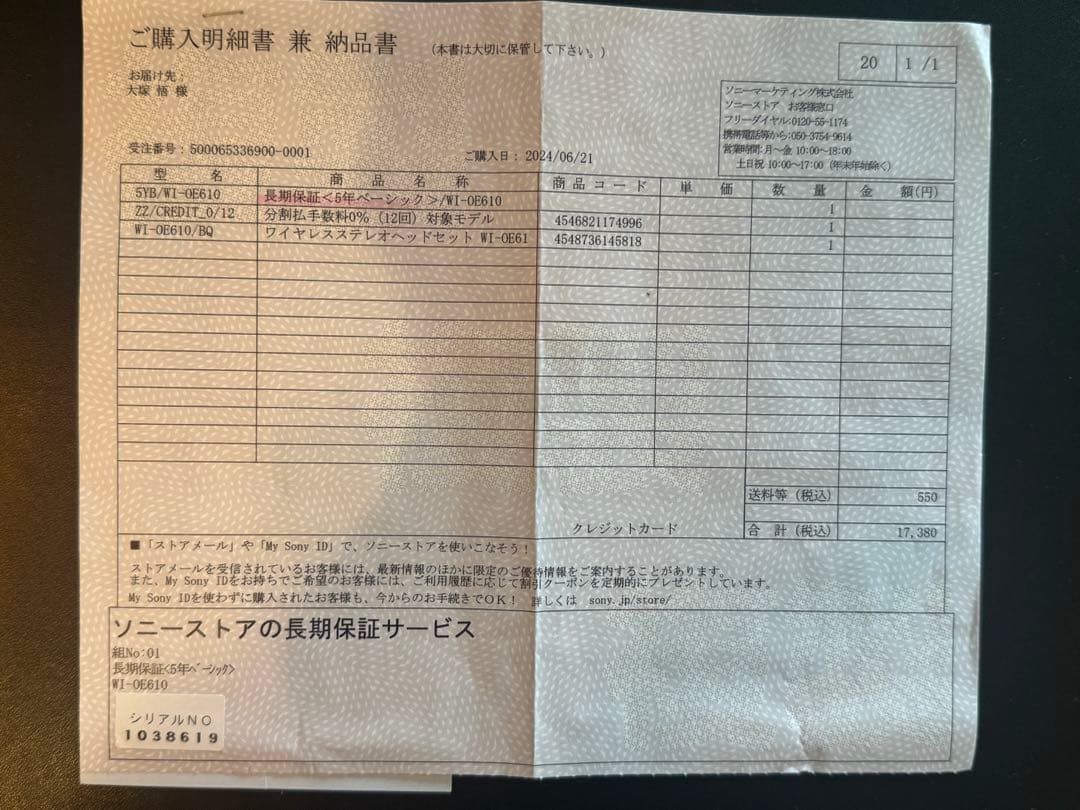 ご購入明細書 兼 納品書 (本書は大切に保管して下さい。)
20 1 /1
お届け先:
大塚 悟 様
ソニーマーケティング株式会社
ソニーストア お客様窓口
フリーダイヤル:0120-55-1174
携帯電話等から:050-3754-9614
営業時間:月～金 10:00～18:00
土日祝 10:00～17:00 (年末年始除く)
受注番号: 500065336900-0001 ご購入日: 2024/06/21
型名 商品名称 商品コード 単価 数量 金額(円)
5YB/WI-OE610 長期保証<5年ベーシック>/WI-OE610 1
ZZ/CREDIT_0/12 分割払手数料0% (12回) 対象モデル 4546821174996 1
WI-OE610/BQ ワイヤレスステレオヘッドセット WI-OE61 4548736145818 1
送料等 (税込) 550
クレジットカード 合計 (税込) 17,380
■「ストアメール」や「My Sony ID」で、ソニーストアを使いこなそう!
ストアメールを受信されているお客様には、最新情報のほかに限定のご優待情報をご案内することがあります。
また、My Sony IDをお持ちでご希望のお客様には、ご利用履歴に応じて割引クーポンを定期的にプレゼントしています。
My Sony IDを使わずに購入されたお客様も、今からのお手続きでOK! 詳しくは sony.jp/store/
ソニーストアの長期保証サービス
組No:01
長期保証<5年ベーシック>
WI-OE610
シリアルNO
1038619